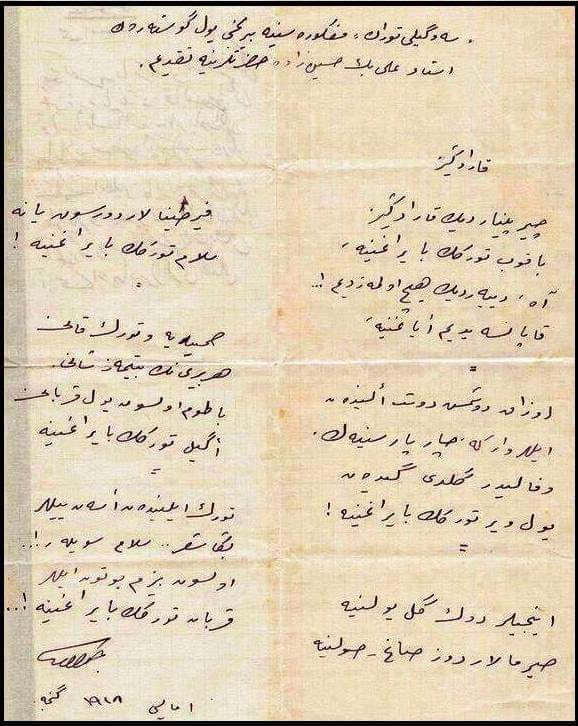 سه وگیلی توران، مفكوره سینه برنجی یول گوسته رەن
استاد علی بك حسین زاده حضرتلرینه تقدیم.
قارا دڭیز
چیرپینیاردیك قارا دڭیز
باقوب توركك بایراغینه،
آه، دییه ردیك هیچ اولمه زدیم!..
قاپانسه یدیم آیاغینه،
اوزاق دوشمش دوست ألیندەن
ایللر وار كه، چارپار سینەك.
وفالیدر گلدی گیدەن
یول ویر توركك بایراغینه!
اینجیلر دوك گل یولینه
صیرمالار دوز صاغ-صولینه
فیرطینالار دورسون یانه
سلام توركك بایراغینه!
حمیدیه و تورك قانی
هربیری نك بیتمه ز شانی.
باطوم اولسون یول قربانی
أگیل توركك بایراغینه
تورك ایلیندەن أسەن ییللر
بڭا شعر.. سلام سویله ر!..
اولسون بزم بوتون ایللر
قربان توركك بایراغینه!..
۱۹۱۸ گنجه.